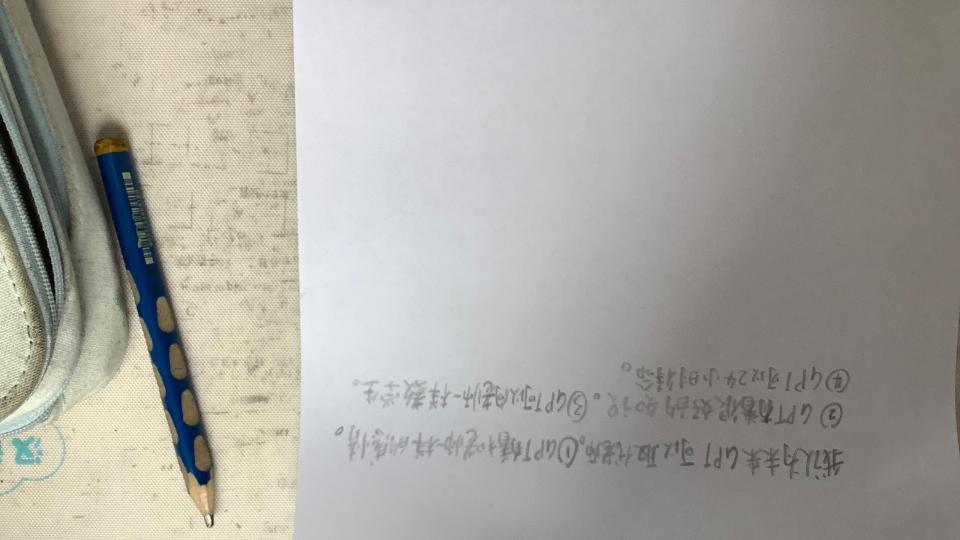 我认为未来GPT可以取代老师。①GPT有着和老师一样的感情。
②GPT有着很好的知识。③GPT可以向老师一样教学生。
④GPT可以24小时待命。